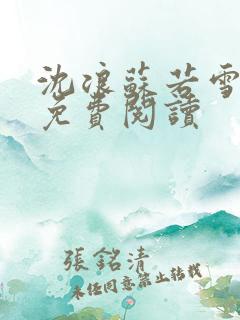 沈浪蘇若雪
免費閱讀
張銘清
未经同意禁止转载